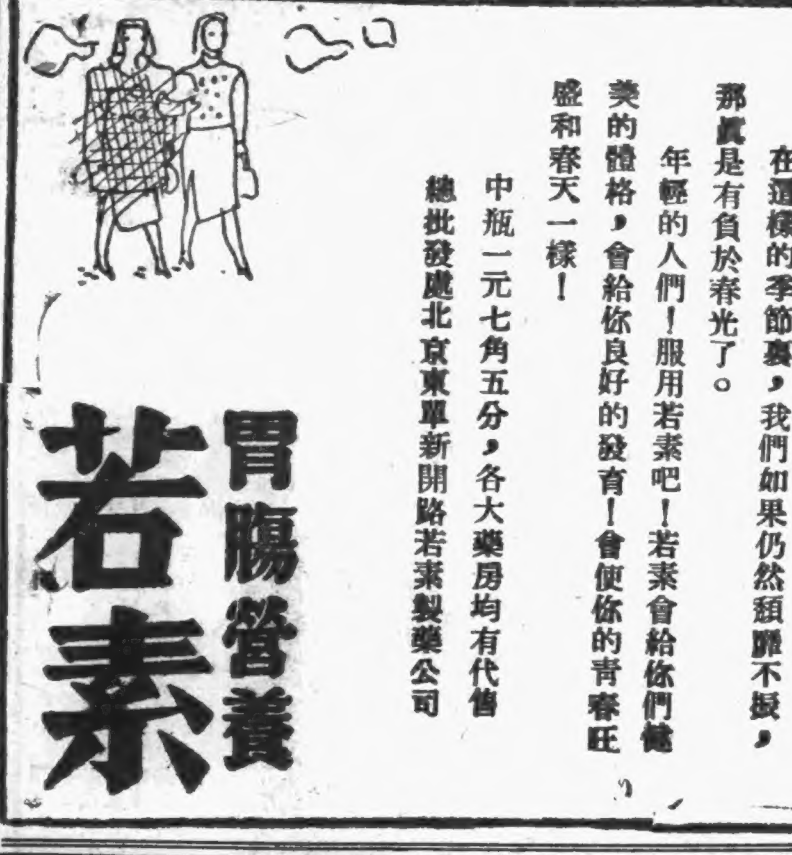 在這樣的季節裏，我們如果仍然頹靡不振，
那眞是有負於春光了。
年輕的人們！服用若素吧！若素會給你們健
美的體格，會給你良好的發育！會使你的青春旺
盛和春天一樣！
中瓶一元七角五分，各大藥房均有代售
總批發處北京東單新開路若素製藥公司
胃腸營養
若素